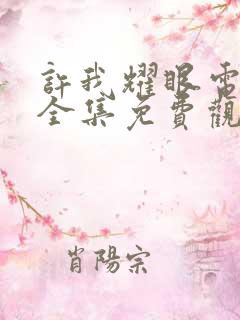 許我耀眼電
全集免費觀
肖陽宗